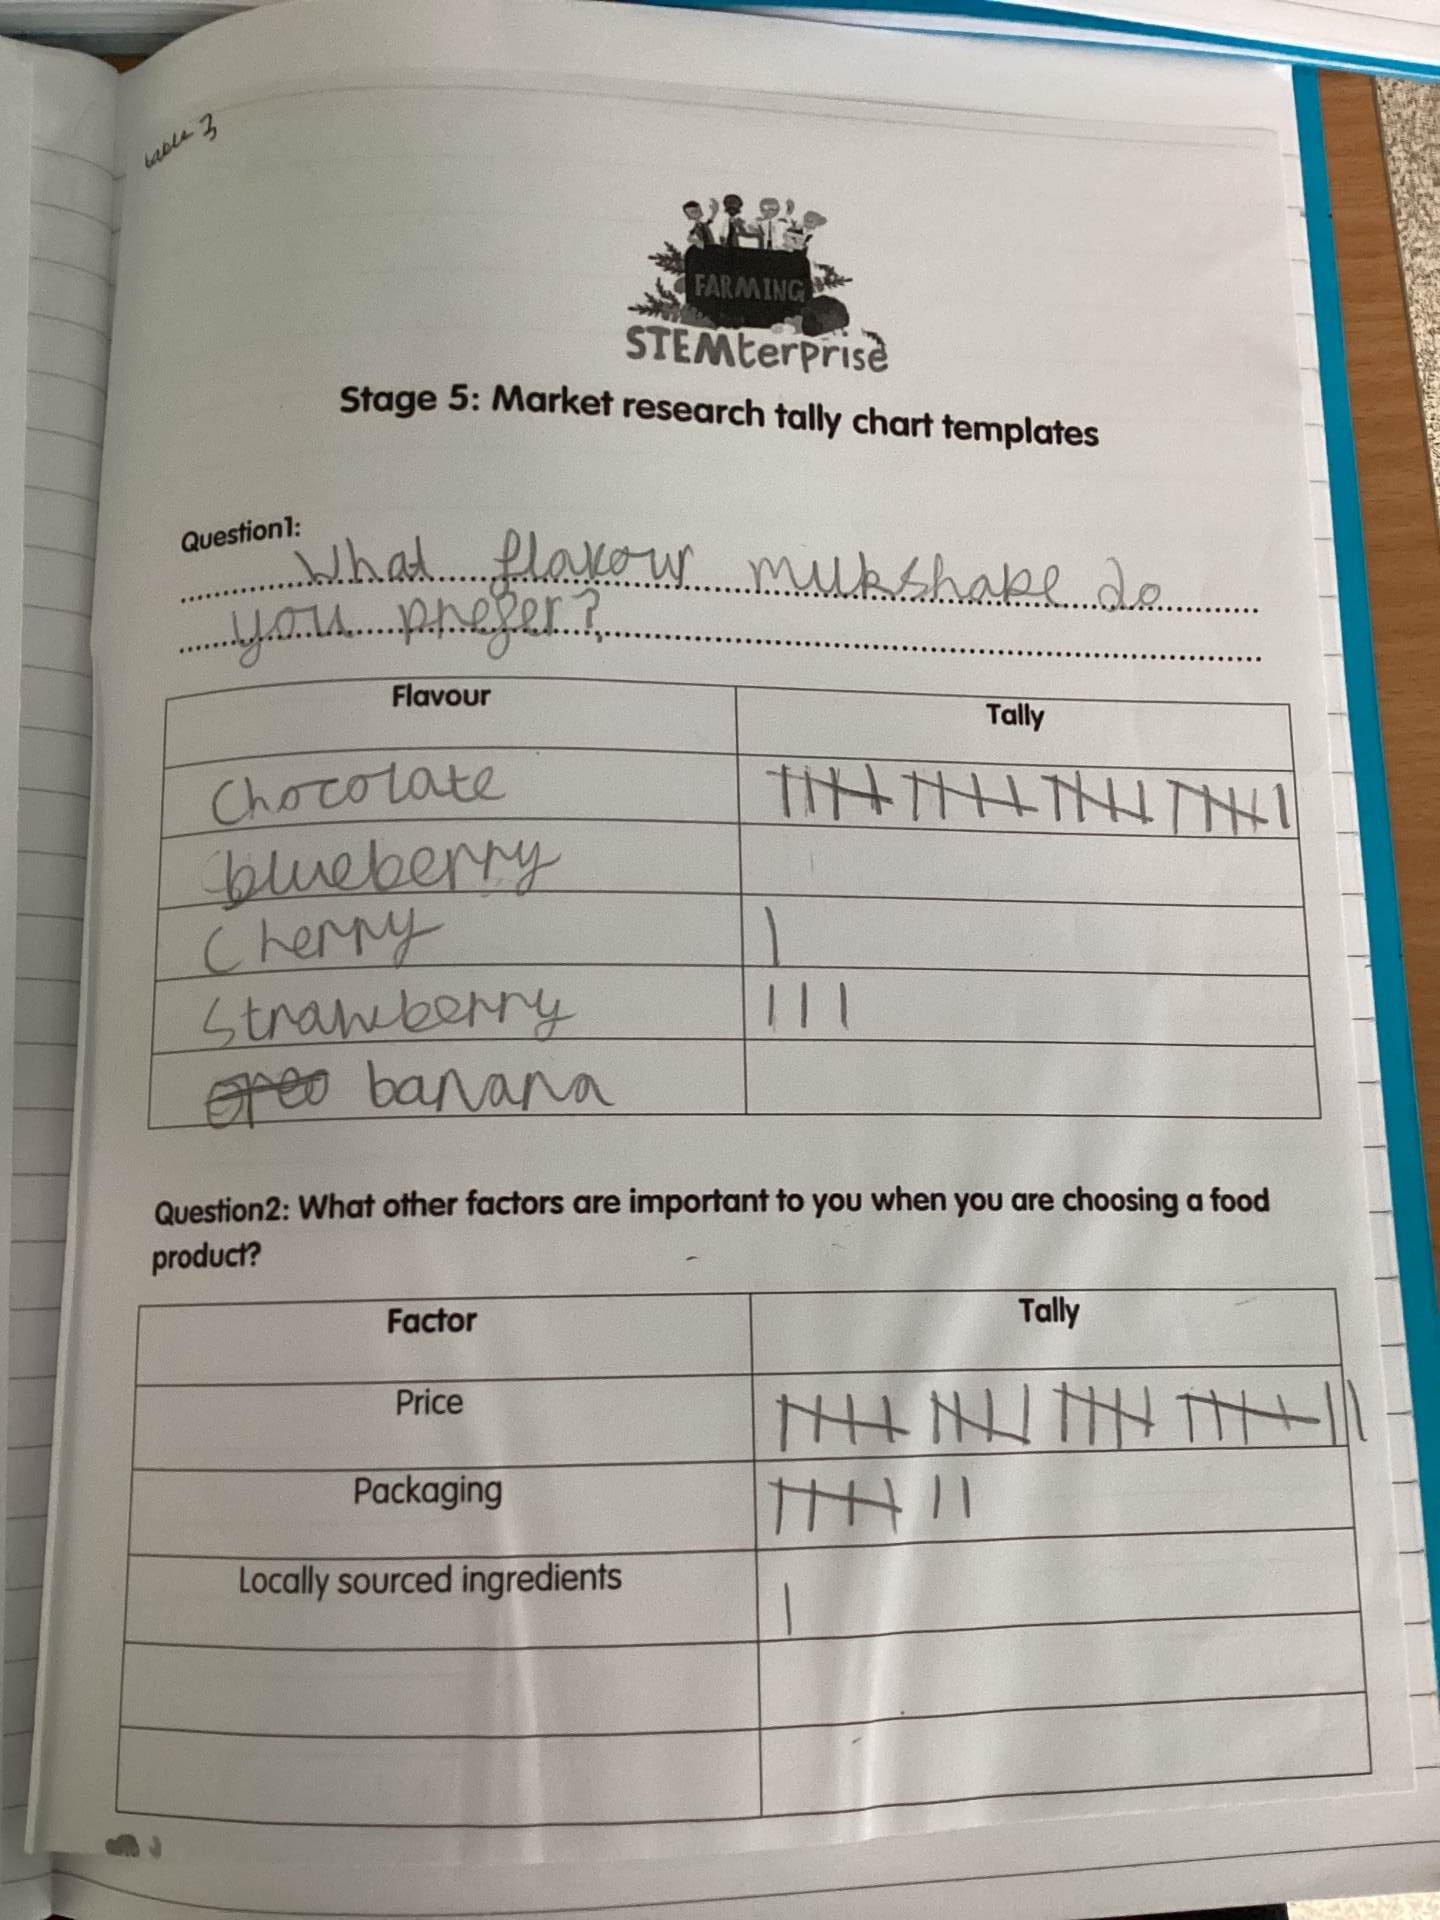 table 3
FARMING
STEMterprise
Stage 5: Market research tally chart templates
Question1:
What flavour milkshake do
you prefer?
Flavour Tally
Chocolate
blueberry
Cherry |
Strawberry | | |
oreo banana
Question2: What other factors are important to you when you are choosing a food
product?
Factor Tally
Price
Packaging
Locally sourced ingredients |